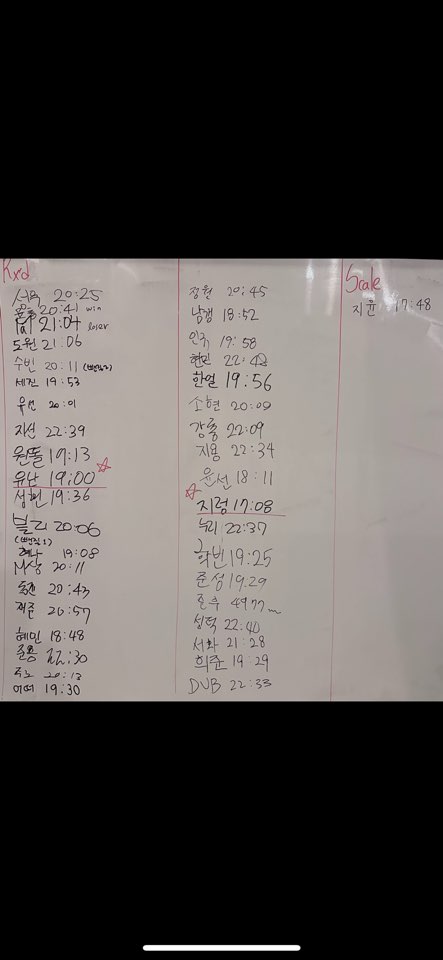 Rxd
서욱 20:25
윤홍 20:41 win
Pal 21:04 loser
도원 21:06
수빈 20:11
세진 19:53
우선 20:01
지선 22:39
원똘 17:13
유난 19:00
성현 19:36
블리 20:06
19:08
M상 20:11
동건 20:43
재준 20:57
혜민 18:48
준용 22:30
20:13
19:30
정원 20:45
남갱 18:52
민규 19:58
현민 22:42
한얼 19:56
소현 20:09
강홍 22:09
지용 22:34
윤선 18:11
지렁 17:08
누리 22:37
학빈 19:25
준성 19:29
은우 4977m
성덕 22:40
서화 21:28
희준 19:29
DUB 22:33
Scale
지윤 17:48